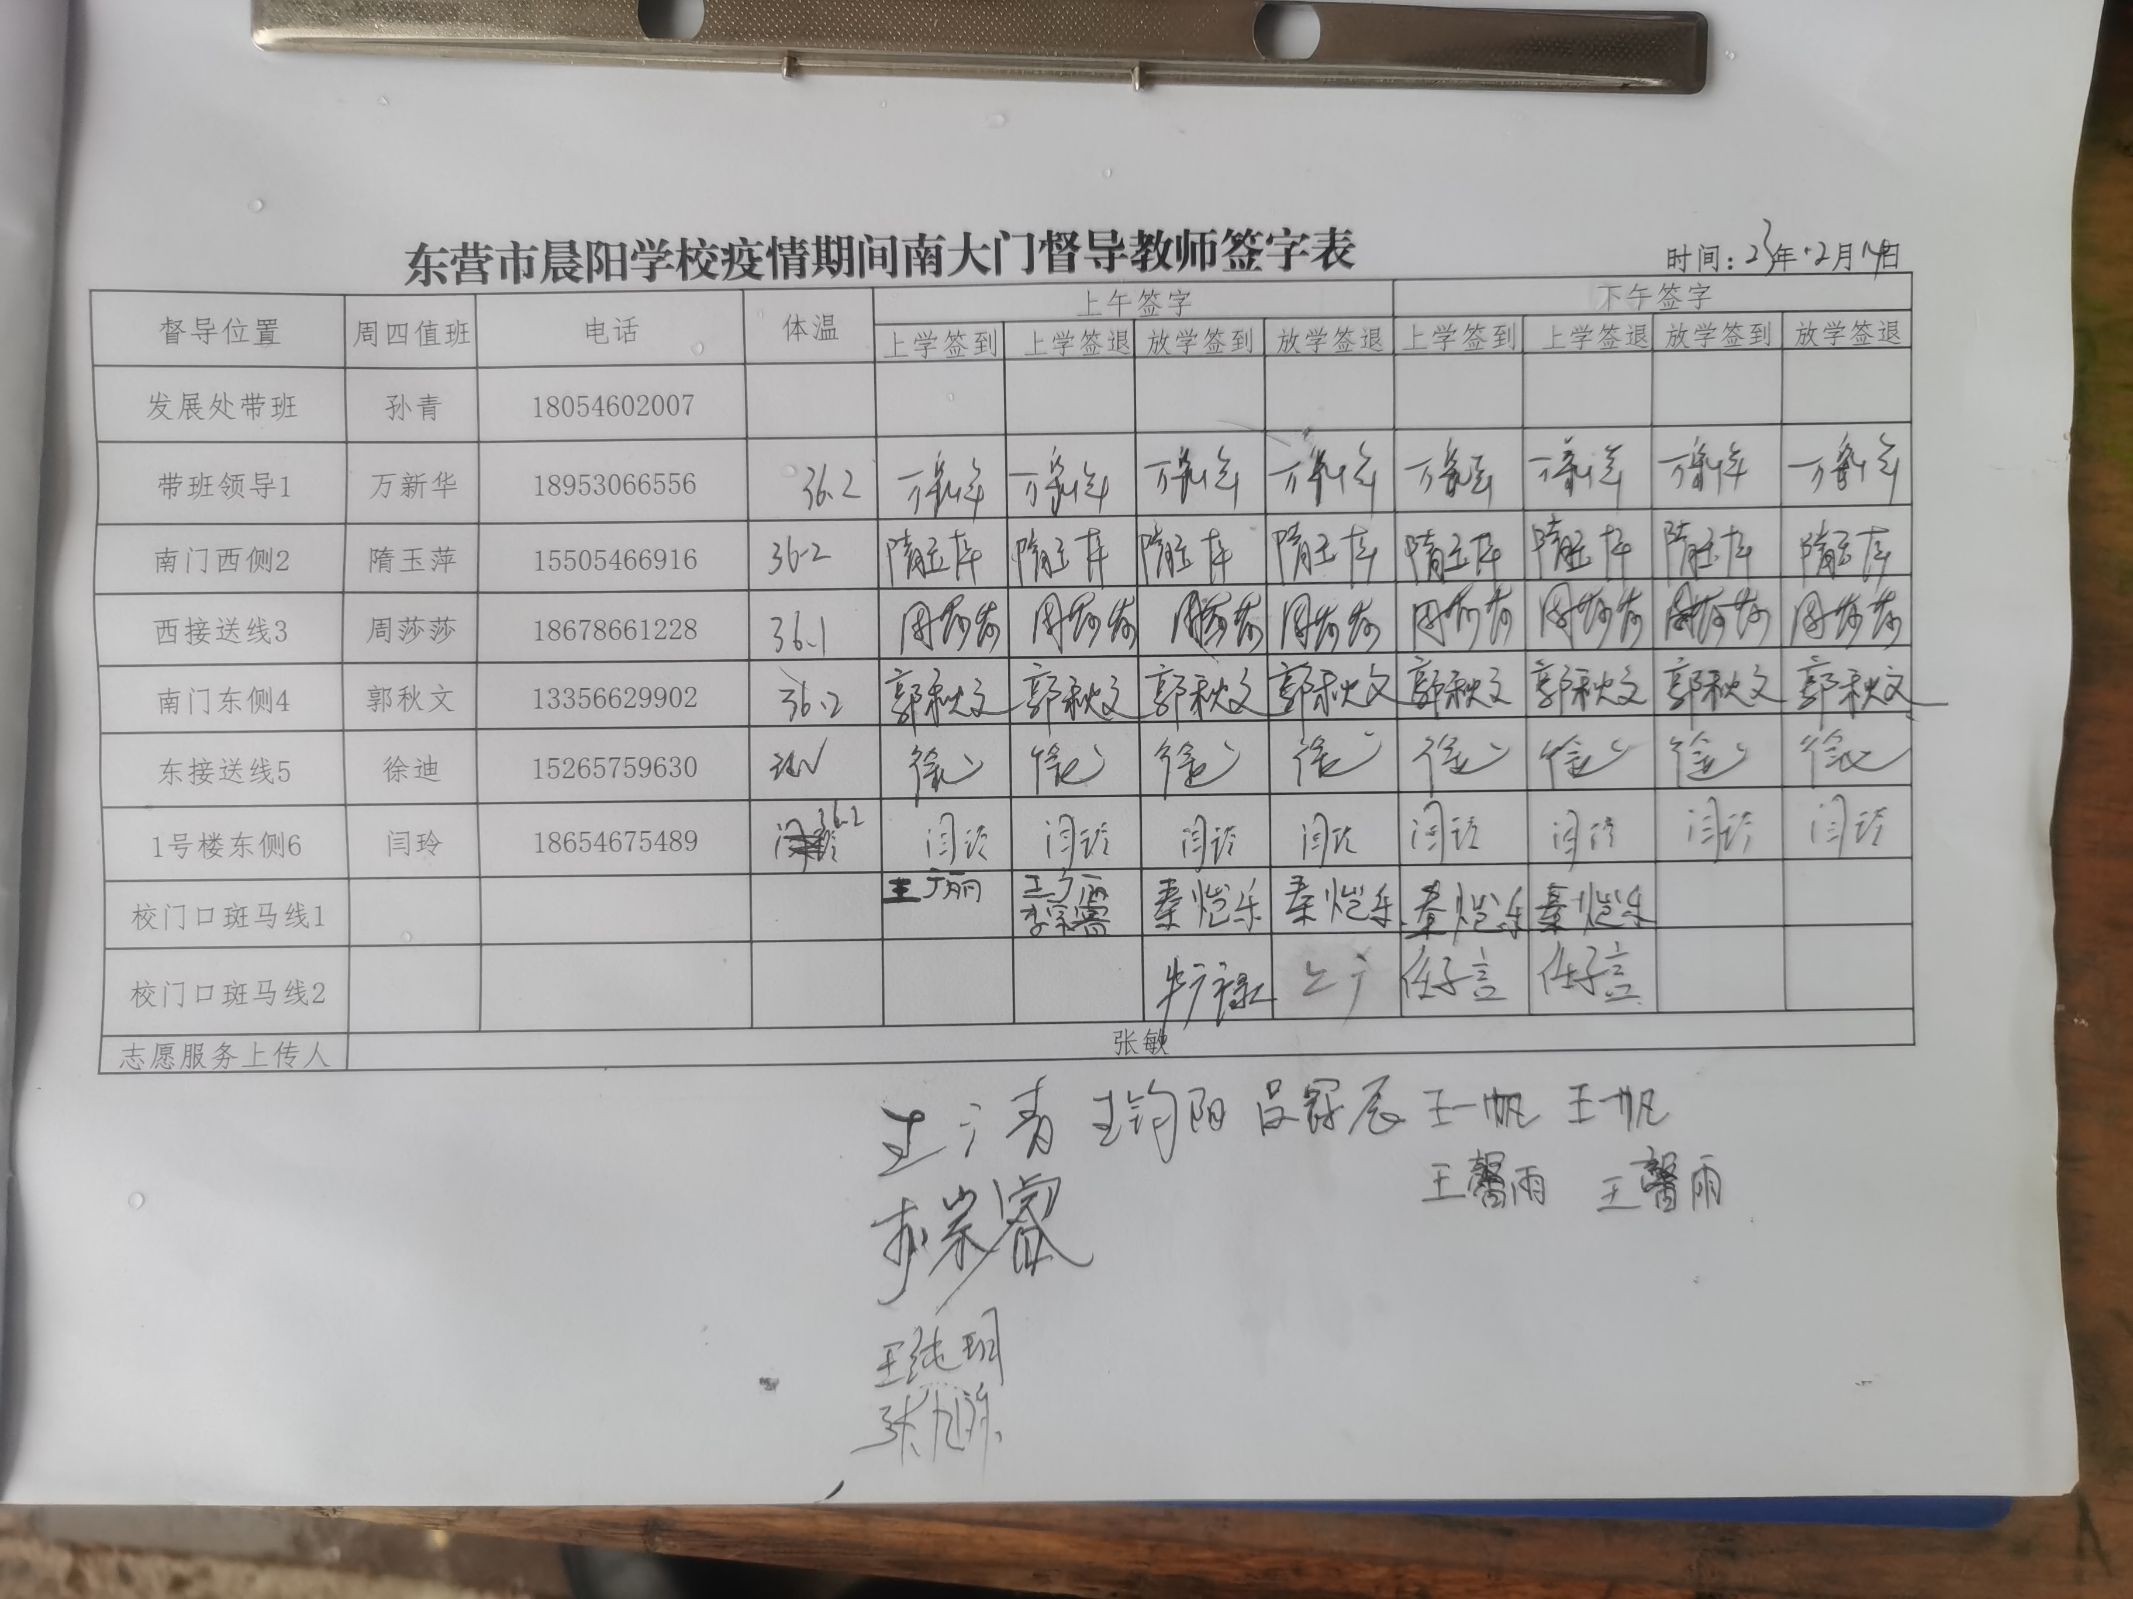 东营市晨阳学校疫情期间南大门督导教师签字表
时间：23年2月14日
督导位置 周四值班 电话 体温 上午签字 下午签字
上学签到 上学签退 放学签到 放学签退 上学签到 上学签退 放学签到 放学签退
发展处带班 孙青 18054602007
带班领导1 万新华 18953066556 36.2 万新华 万新华 万新华 万新华 万新华 万新华 万新华 万新华
南门西侧2 隋玉萍 15505466916 36.2 隋玉萍 隋玉萍 隋玉萍 隋玉萍 隋玉萍 隋玉萍 隋玉萍 隋玉萍
西接送线3 周莎莎 18678661228 36.1 周莎莎 周莎莎 周莎莎 周莎莎 周莎莎 周莎莎 周莎莎 周莎莎
南门东侧4 郭秋文 13356629902 36.2 郭秋文 郭秋文 郭秋文 郭秋文 郭秋文 郭秋文 郭秋文 郭秋文
东接送线5 徐迪 15265759630 徐迪 徐迪 徐迪 徐迪 徐迪 徐迪 徐迪 徐迪
1号楼东侧6 闫玲 18654675489 36.2 闫玲 闫玲 闫玲 闫玲 闫玲 闫玲 闫玲 闫玲
校门口斑马线1 秦恺乐 秦恺乐 秦恺乐 秦恺乐
校门口斑马线2 任子言 任子言
志愿服务上传人 张敏
王钧阳 吕冠辰 王一帆 王一帆
王馨雨 王馨雨